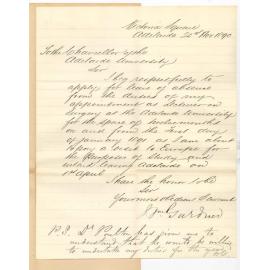 Victoria Square
Adelaide 20th Nov 1890
To the Chancellor of the
Adelaide University
Sir
I beg respectfully to
apply for leave of absence
from the duties of my
appointment as Lecturer on
Surgery at the Adelaide University
for the space of twelve months
on and from the first day
of January 1891 as I am about
to pay a visit to Europe for
the purposes of study and
intend leaving Adelaide on
1st April
I have the honor to be
Sir
Your most obedient Servant
Wm Gardner
P.S. Dr has given me to
understand that he would be willing
to undertake my duties for the year